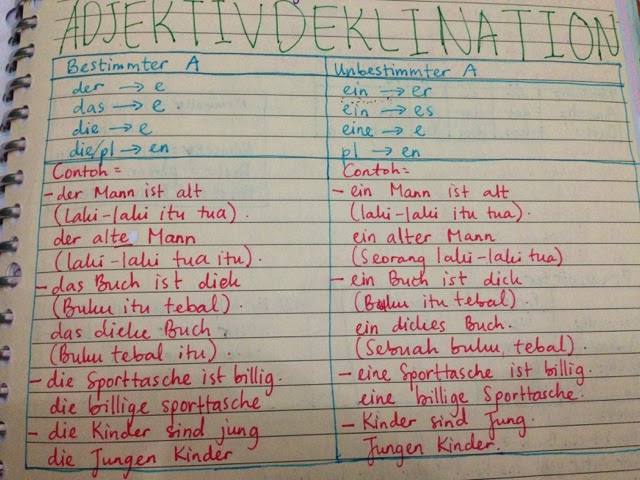 ADJEKTIVDEKLINATION
Bestimmter A
der → e
das → e
die → e
die/pl → en
Contoh =
- der Mann ist alt
(laki-laki itu tua).
der alte Mann
(laki-laki tua itu).
- das Buch ist dick
(Buku itu tebal).
das dicke Buch
(Buku tebal itu).
- die Sporttasche ist billig.
die billige sporttasche
- die Kinder sind jung
die Jungen Kinder
Unbestimmter A
ein → er
ein → es
eine → e
pl → en
Contoh =
- ein Mann ist alt
(laki-laki itu tua).
ein alter Mann
(Seorang laki-laki tua)
- ein Buch ist dick
(Buku itu tebal)
ein dickes Buch.
(Sebuah buku tebal).
- eine Sporttasche ist billig.
eine billige Sporttasche.
- Kinder sind Jung.
Jungen Kinder.